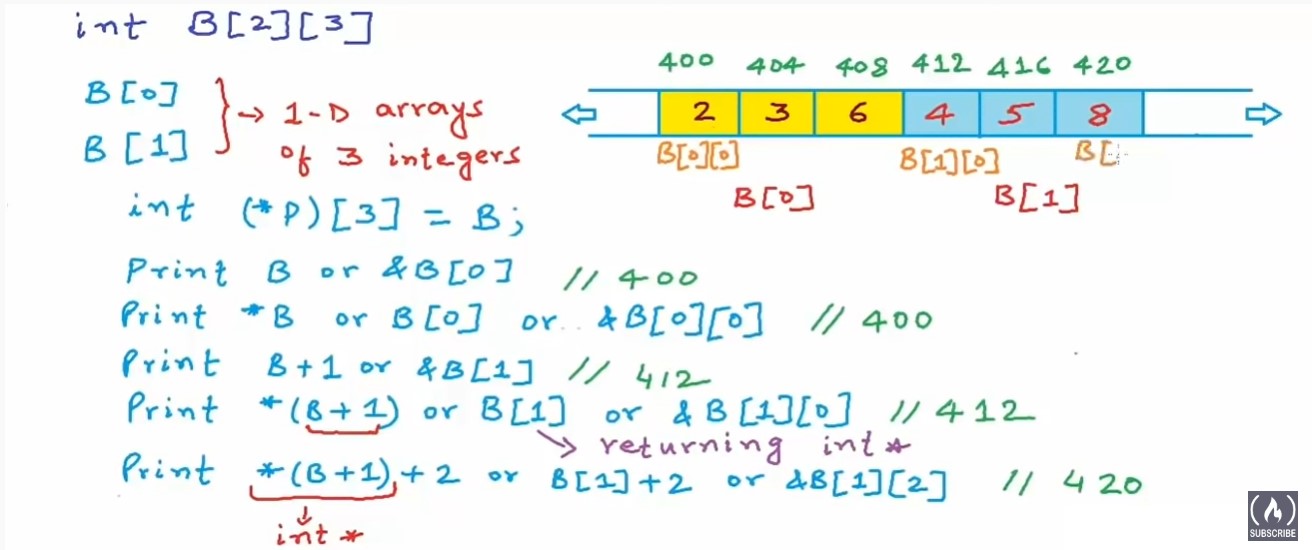 int B[2][3]
B[0]
B[1]
→ 1-D arrays
of 3 integers
400 404 408 412 416 420
2 3 6 4 5 8
B[0][0] B[1][0] B[
B[0] B[1]
int (*P)[3] = B;
Print B or &B[0] // 400
Print *B or B[0] or &B[0][0] // 400
Print B+1 or &B[1] // 412
Print *(B+1) or B[1] or &B[1][0] // 412
returning int*
Print *(B+1)+2 or B[1]+2 or &B[1][2] // 420
int *
SUBSCRIBE